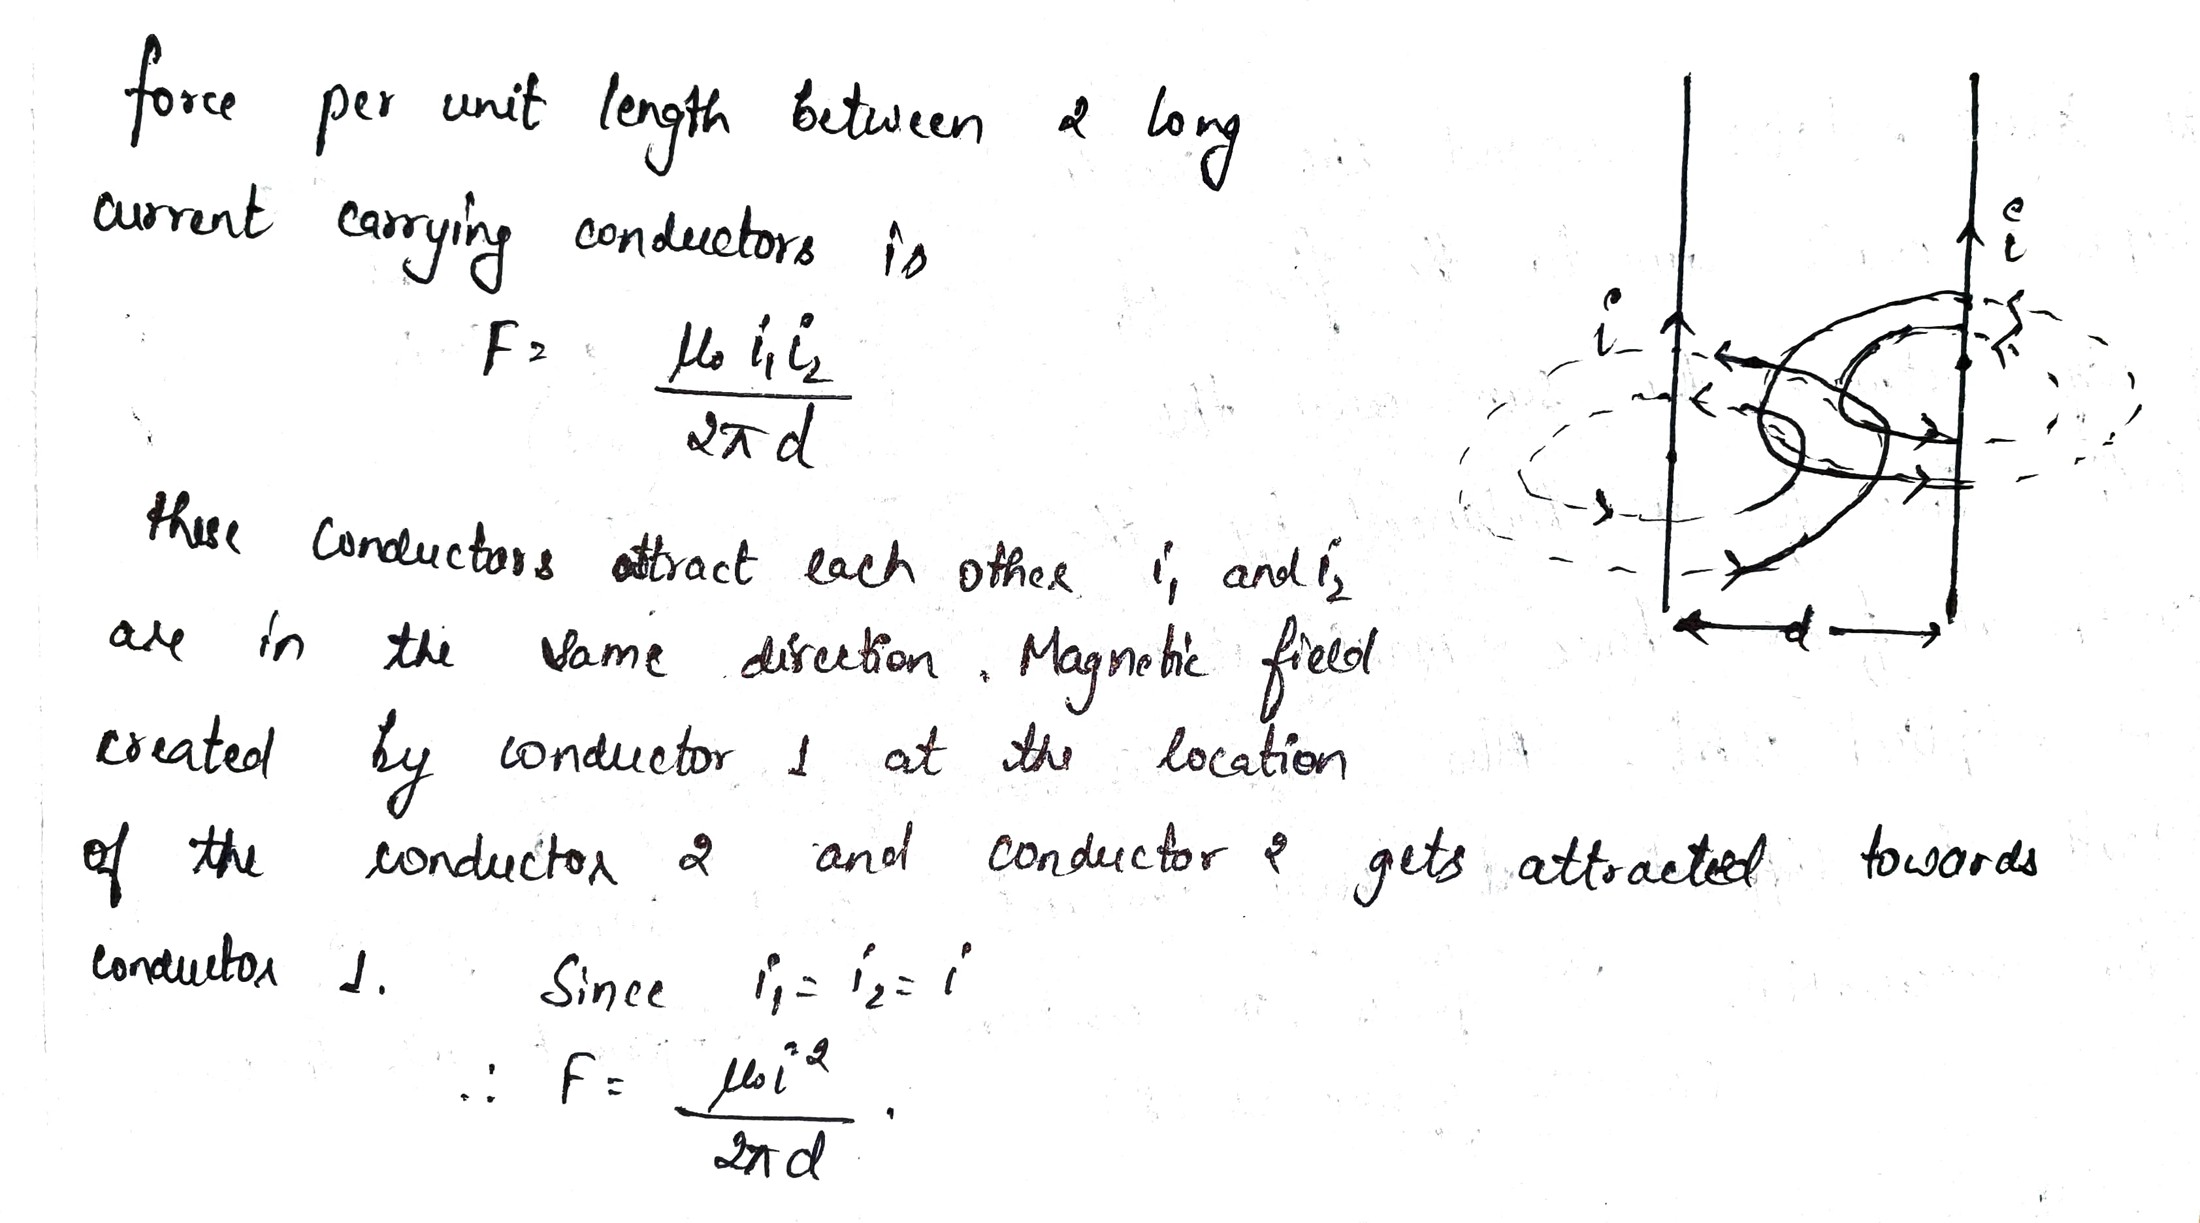 force per unit length between 2 long
current carrying conductors is
F = μ₀ i₁ i₂
2π d
these conductors attract each other i₁ and i₂
are in the same direction. Magnetic field
created by conductor 1 at the location
of the conductor 2 and conductor 2 gets attracted towards
conductor 1. Since i₁ = i₂ = i
∴ F = μ₀ i²
2π d.
i
i
d